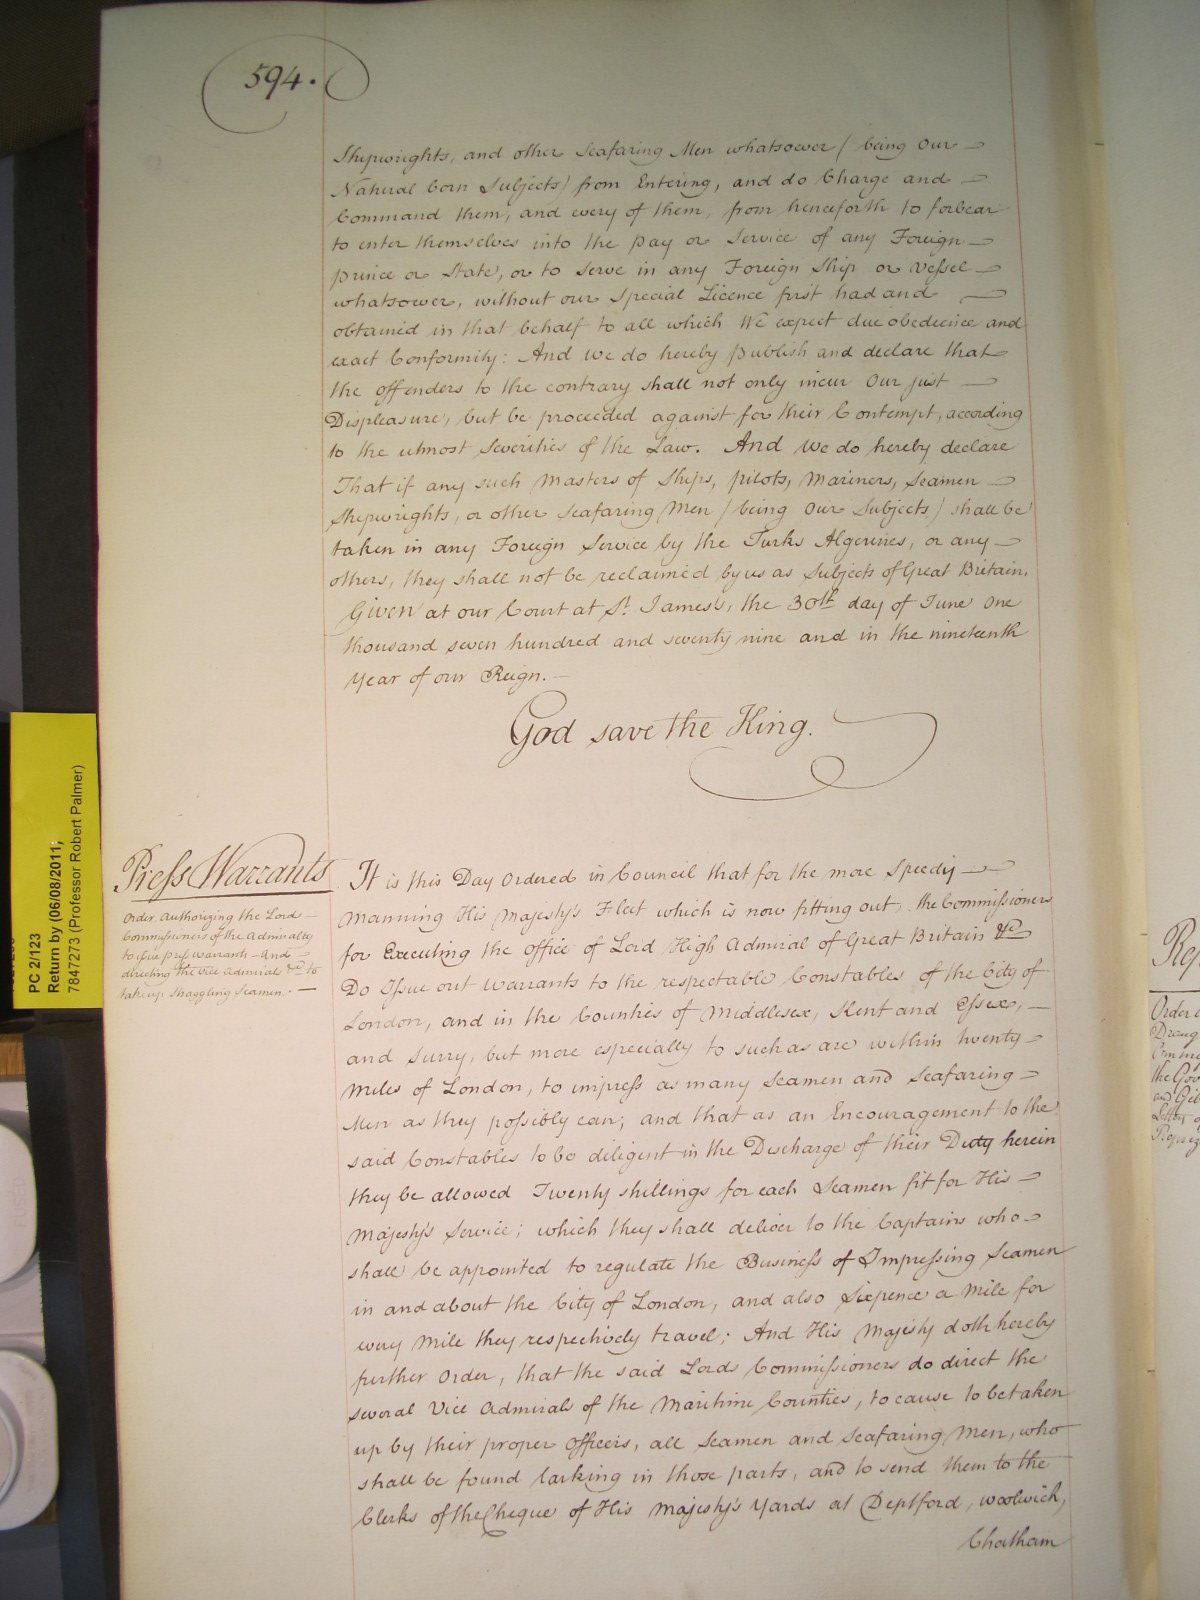 594.
Shipwrights, and other Seafaring Men whatsoever (being Our
Natural born Subjects) from Entering, and do Charge and
Command them, and every of them, from henceforth to forbear
to enter themselves into the Pay or Service of any Foreign
Prince or State, or to Serve in any Foreign Ship or Vessel
whatsoever, without our Special Licence first had and
obtained in that behalf to all which We expect due obedience and
exact Conformity: And We do hereby Publish and declare that
the Offenders to the contrary shall not only incur Our just
Displeasure, but be proceeded against for their Contempt, according
to the utmost Severities of the Law. And We do hereby declare
That if any such Masters of Ships, Pilots, Mariners, Seamen
Shipwrights, or other Seafaring Men (being Our Subjects) shall be
taken in any Foreign Service by the Turks Algerines, or any
others, they shall not be reclaimed by us as Subjects of Great Britain.
Given at our Court at St. James's, the 30th day of June One
thousand seven hundred and seventy nine and in the nineteenth
Year of our Reign.
God save the King.
Press Warrants
Order authorizing the Lord
Commissioners of the Admiralty
to issue press warrants and
directing the Vice Admiral &ca to
take up straggling Seamen.
It is this Day Ordered in Council that for the more Speedy
Manning His Majesty's Fleet which is now fitting out, the Commissioners
for Executing the Office of Lord High Admiral of Great Britain &ca
Do Issue out Warrants to the respectable Constables of the City of
London, and in the Counties of Middlesex, Kent and Essex,
and Surry, but more especially to such as are within twenty
Miles of London, to impress as many Seamen and Seafaring
Men as they possibly can; and that as an Encouragement to the
said Constables to be diligent in the Discharge of their Duty herein
they be allowed Twenty shillings for each Seamen fit for His
Majesty's Service; which they shall deliver to the Captains who
shall be appointed to regulate the Business of Impressing Seamen
in and about the City of London, and also Sixpence a Mile for
every Mile they respectively travel; And His Majesty doth hereby
further Order, that the said Lords Commissioners do direct the
several Vice Admirals of the Maritime Counties, to cause to be taken
up by their proper Officers, all Seamen and Seafaring Men, who
shall be found larking in those parts, and to send them to the
Clerks of the Cheque of His Majesty's Yards at Deptford, Woolwich,
Chatham
PC 2/123
Return by (06/08/2011;
784727​3 (Professor Robert Palmer)
Order
the Gov